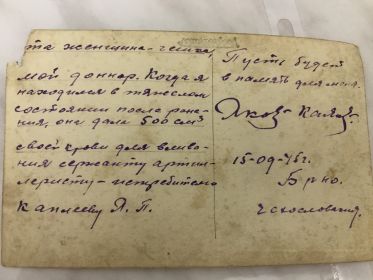 та женщина-чешка,
мой доннор. Когда я
находился в тяжелом
состоянии после ране-
ния, она дала 500 см³
своей крови для влива-
ния сержанту артил-
леристу-истребителю
Каплееву Я. П.
Пусть будет
в память для меня.
Яков
15-09-45г.
Брно.
Чехословакия.